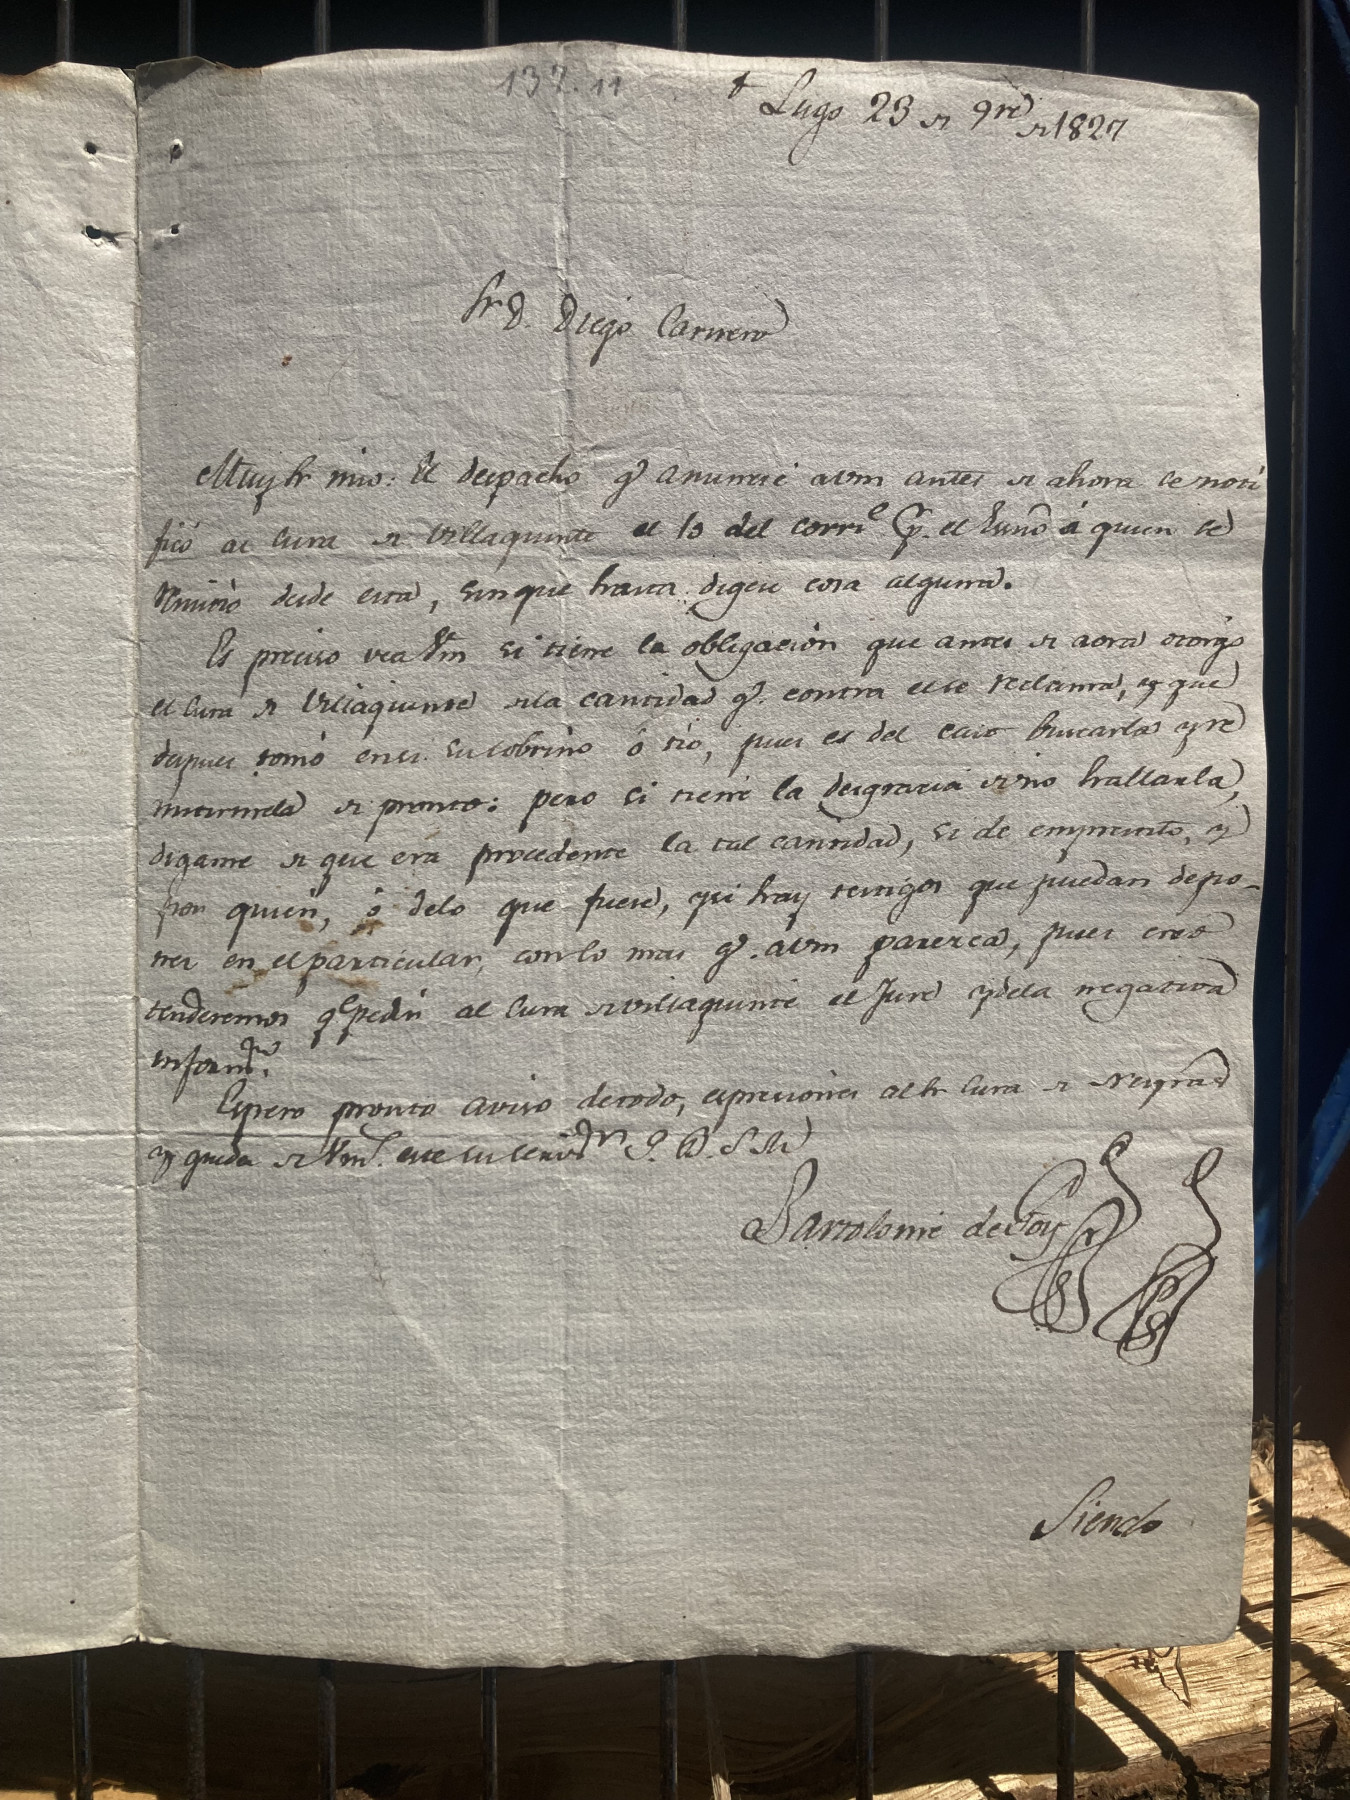 137.11
† Lugo 23 de 9re de 1827
Sr D. Diego Carnero
Muy Sr mio: El despacho q.e anuncié a Vm antes de ahora se noti
ficó al Cura de Villaquinte el 13 del corr.e p.r el Essno á quien se
remitió desde esta, sin que hasta digese cosa alguna.
Es preciso vea Vm si tiene la obligación que antes de aora otorgó
el Cura de Villaquinte de la cantidad q.e contra el se reclama, y que
despues tomó en si su sobrino ó tio, pues es del caso buscarla y re
mitirmela de pronto: pero si tiene la desgracia de no hallarla,
digame de que era procedente la tal cantidad, si de emprestito, y
por quien, ó de lo que fuese, y si hay testigos que puedan depo-
ner en el particular, con lo mas q.e a Vm parezca, pues
tenderemos q.e pedir al Cura de Villaquinte el Jure y de la negativa
inform.n
Espero pronto aviso de todo, espresiones al Sr Cura de
y queda de Vm. este su servidor Q. B. S. M
Bartolomé de Foy
Siendo